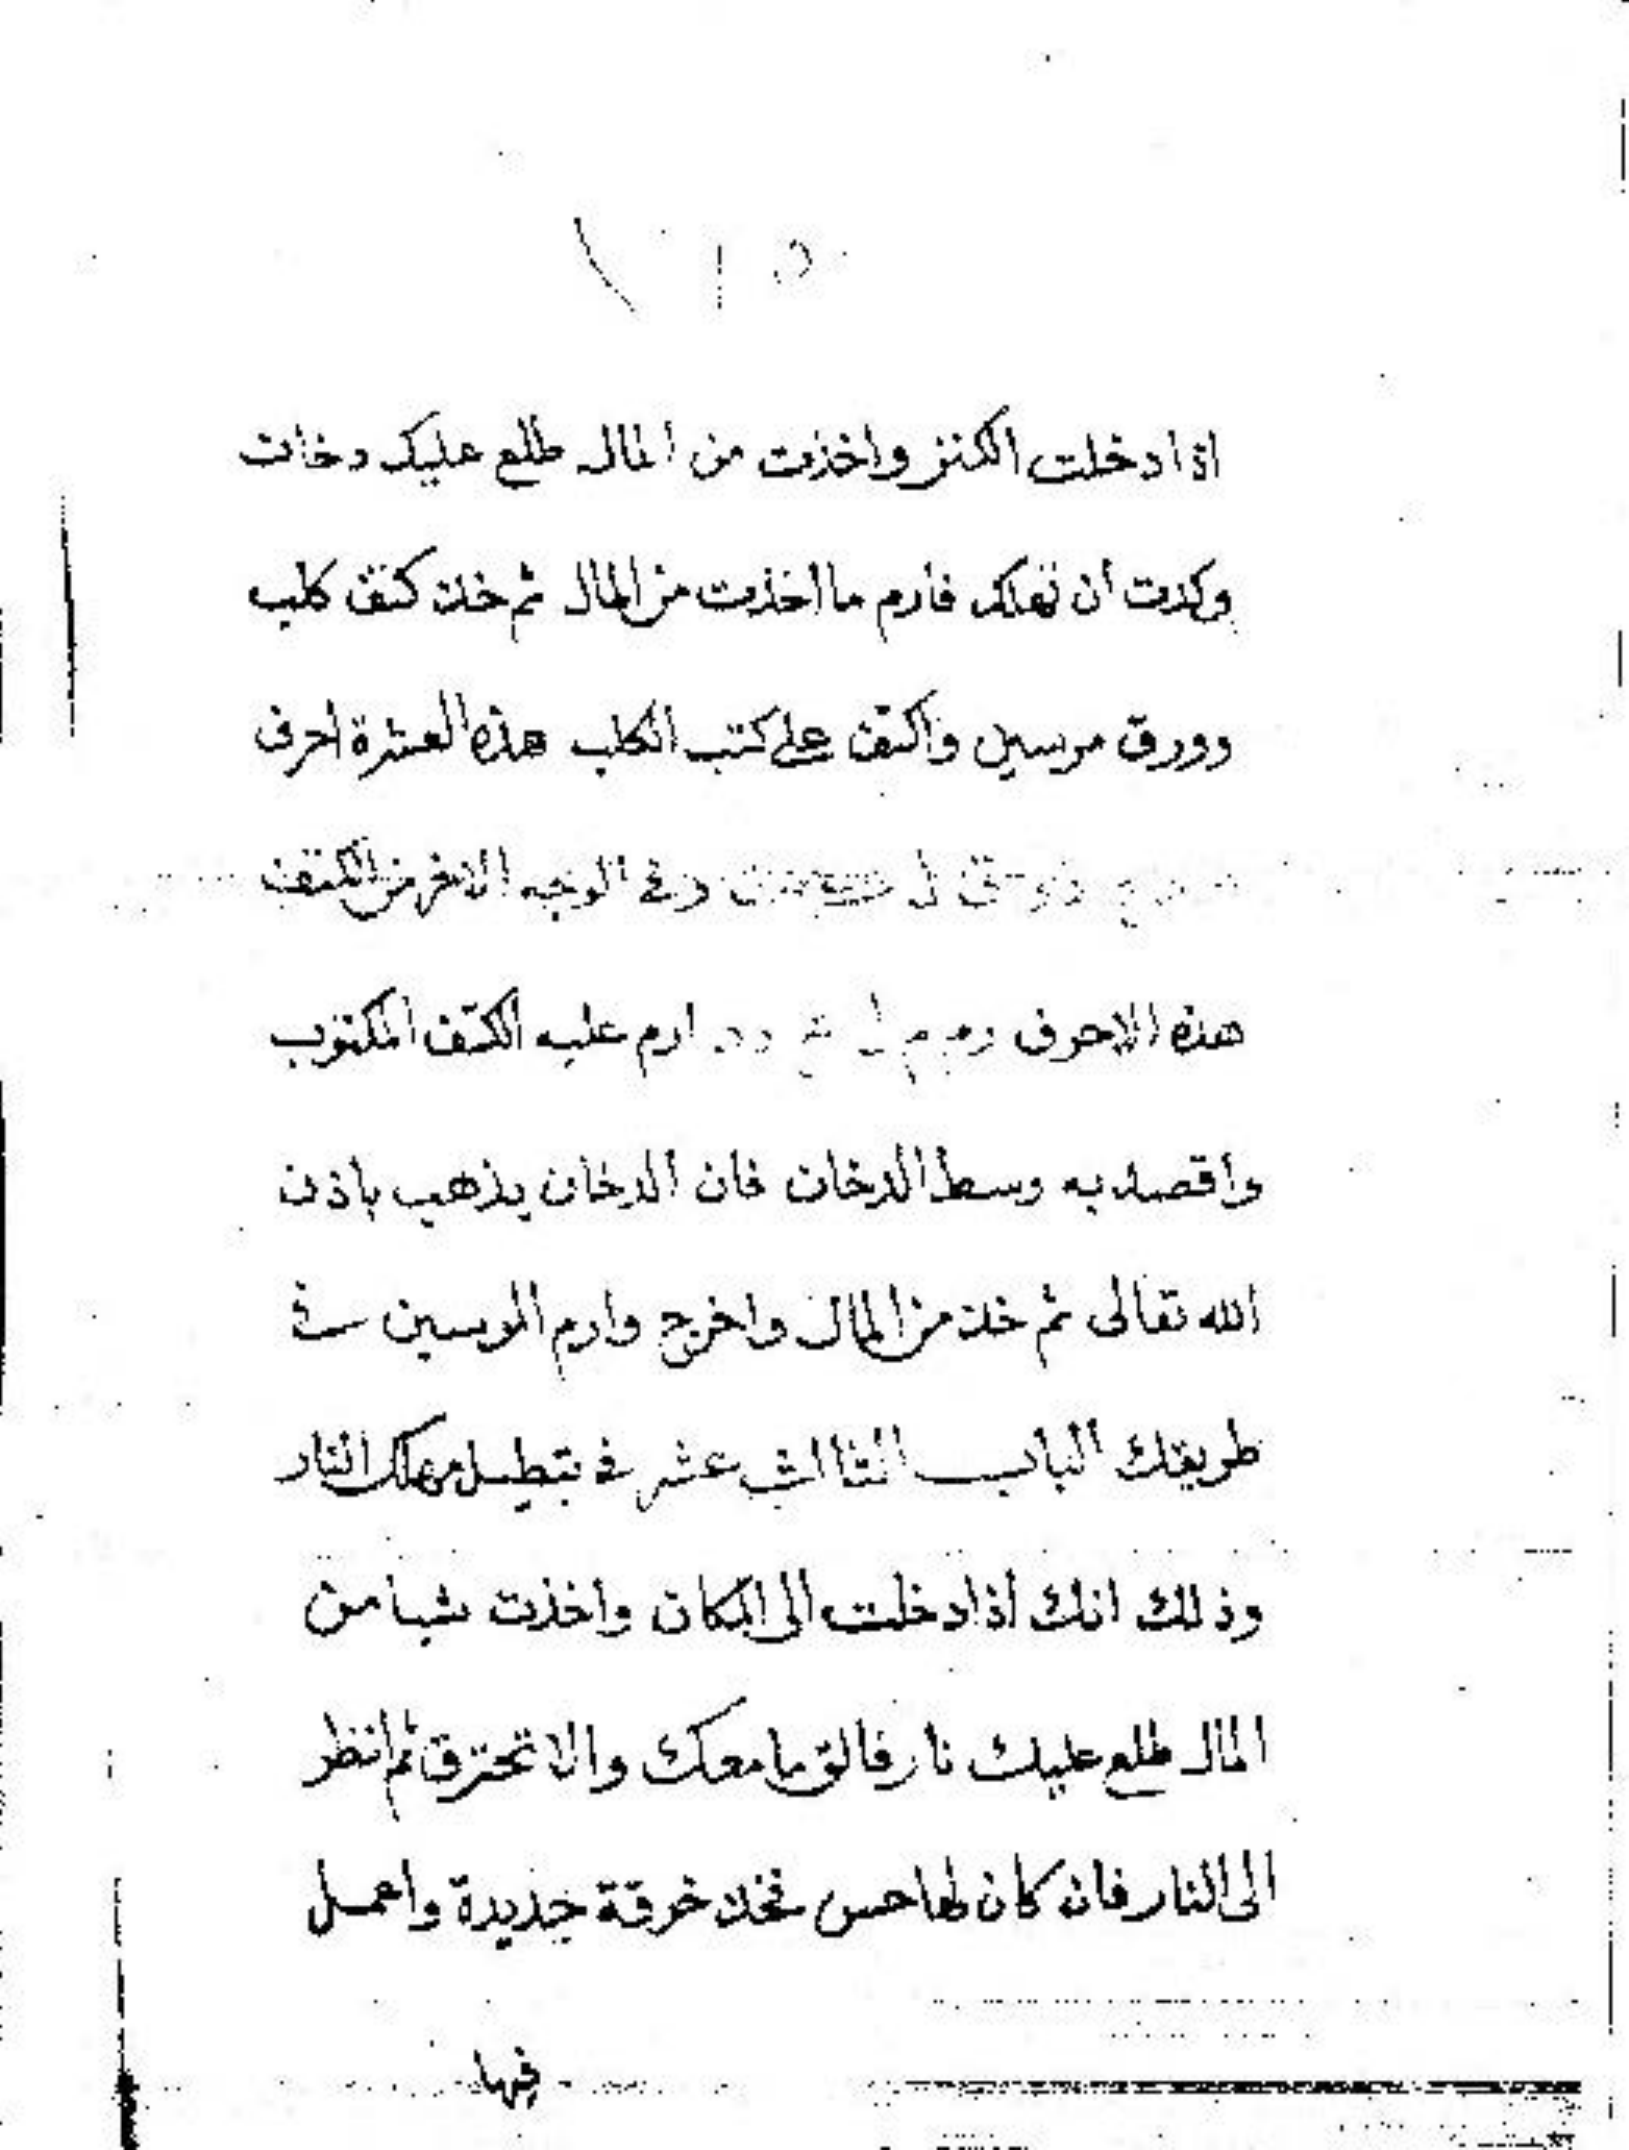 اذا دخلت الكنز واخذت من المال طلع عليك دخان
وكدت ان تهلك فارم ما اخذت من المال ثم خذ كتف كلب
وورق مرسين واكتب على كتب الكلب هذه العشرة احرف
وفي الوجه الاخر من الكتف
هذه الاحرف ارم عليه الكتف المكتوب
واقصد به وسط الدخان فان الدخان يذهب باذن
الله تعالى ثم خذ من المال واخرج وارم المرسين في
طريقك الباب الثالث عشر في تبطيل مهلك النار
وذلك انك اذا دخلت الى المكان واخذت شيا من
المال طلع عليك نار فالق ما معك والا تحترق ثم انظر
الى النار فان كان لها حس فخذ خرقة جديدة واعمل
فيها